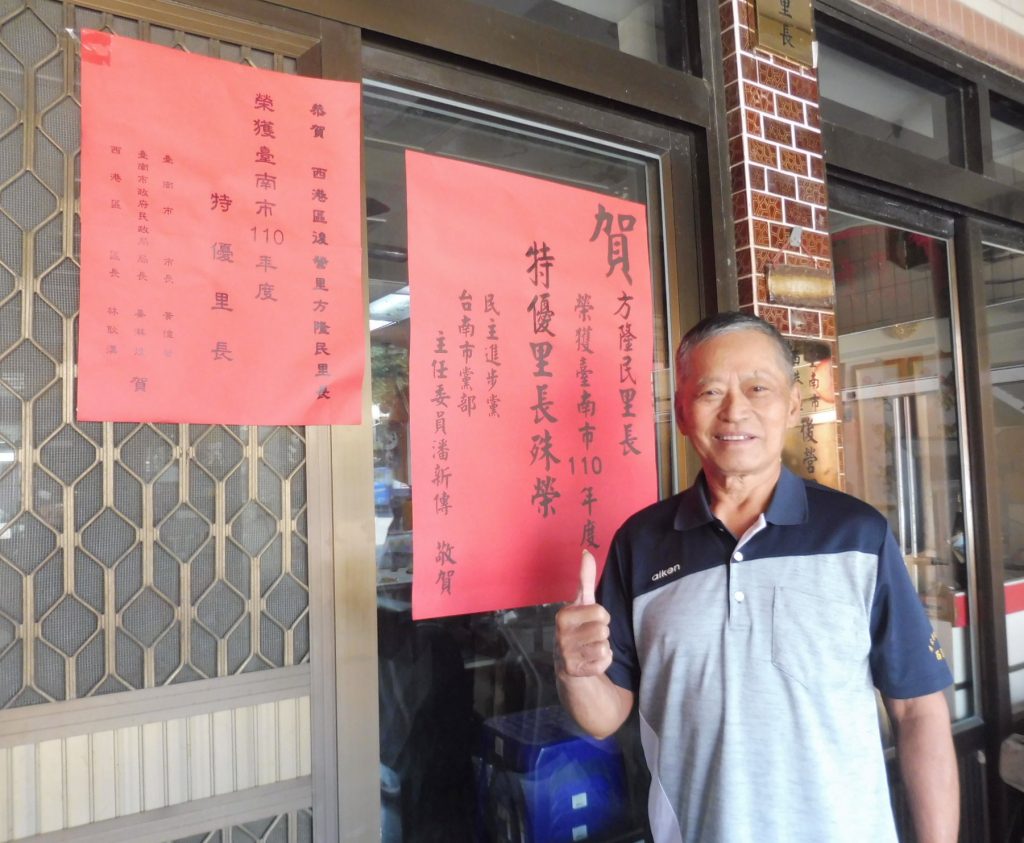 恭賀 西港區後營里方隆民里長
榮獲臺南市110年度
特優里長
臺南市 市長 黃偉哲
臺南市政府民政局局長
西港區 區長 林
賀
賀 方隆民里長
榮獲臺南市110年度
特優里長殊榮
民主進步黨
台南市黨部
主任委員潘新傳 敬賀
里長
南市
後營
aiken